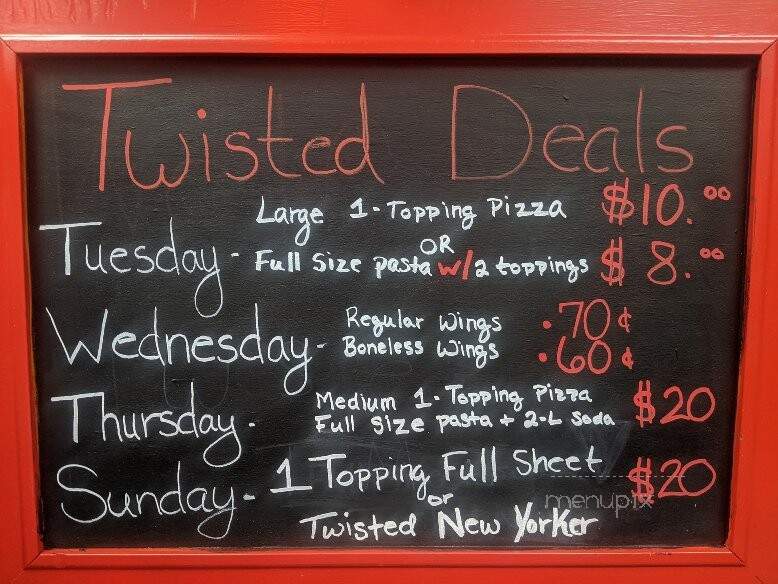 Twisted Deals
Large 1-Topping Pizza $10.00
OR
Tuesday - Full Size pasta w/2 toppings $8.00
Regular Wings .70¢
Wednesday - Boneless Wings .60¢
Medium 1-Topping Pizza
Thursday - Full Size pasta + 2-L Soda $20
Sunday - 1 Topping Full Sheet $20
or
Twisted New Yorker
menupix